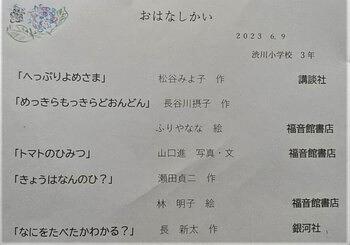 おはなしかい
2023 6.9
渋川小学校 3年
「へっぷりよめさま」 松谷みよ子 作 講談社
「めっきらもっきらどおんどん」 長谷川摂子 作
ふりやなな 絵 福音館書店
「トマトのひみつ」 山口進 写真・文 福音館書店
「きょうはなんのひ？」 瀬田貞二 作
林 明子 絵 福音館書店
「なにをたべたかわかる？」 長 新太 作 銀河社